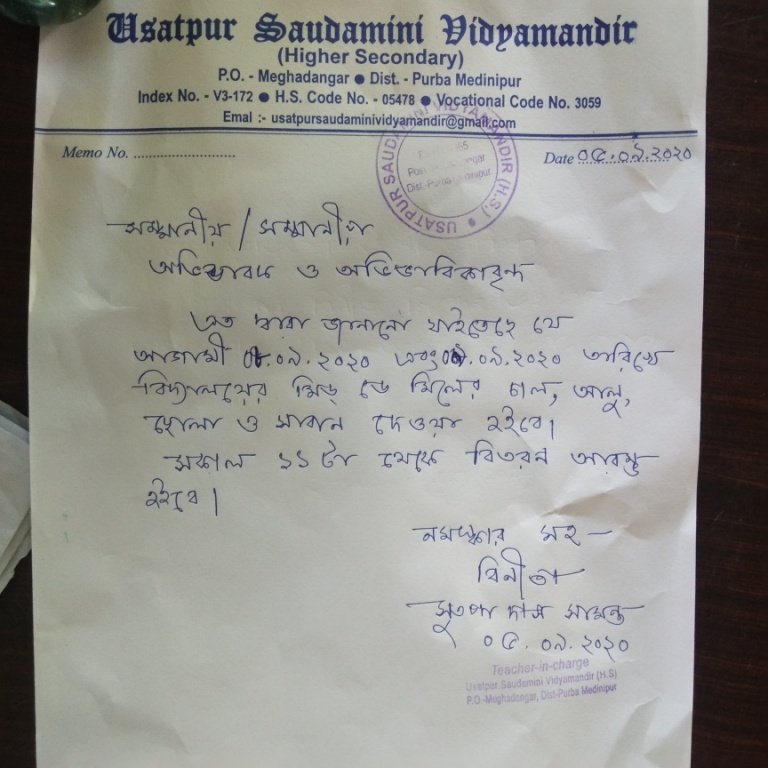 Usatpur Saudamini Vidyamandir
(Higher Secondary)
P.O. - Meghadangar ● Dist. - Purba Medinipur
Index No. - V3-172 ● H.S. Code No. - 05478 ● Vocational Code No. 3059
Emal :- usatpursaudaminividyamandir@gmail.com
Memo No. ............................
Date ০৫.০৯.২০২০
USATPUR SAUDAMINI VIDYAMANDIR (H.S.)
Dist.-Purba Medinipur
সম্মানীয় / সম্মানীয়া
অভিভাবক ও অভিভাবিকাবৃন্দ
এত দ্বারা জানানো যাইতেছে যে
আগামী .০৯.২০২০ এবং .০৯.২০২০ তারিখে
বিদ্যালয়ের মিড্ ডে মিলের চাল, আলু,
ছোলা ও সাবান দেওয়া হইবে।
সকাল ১১টা থেকে বিতরন আরম্ভ
হইবে।
নমস্কার সহ —
বিনীতা
সুতপা দাস সামন্ত
০৫.০৯.২০২০
Teacher-in-charge
Usatpur Saudamini Vidyamandir (H.S)
P.O.-Meghadangar, Dist-Purba Medinipur